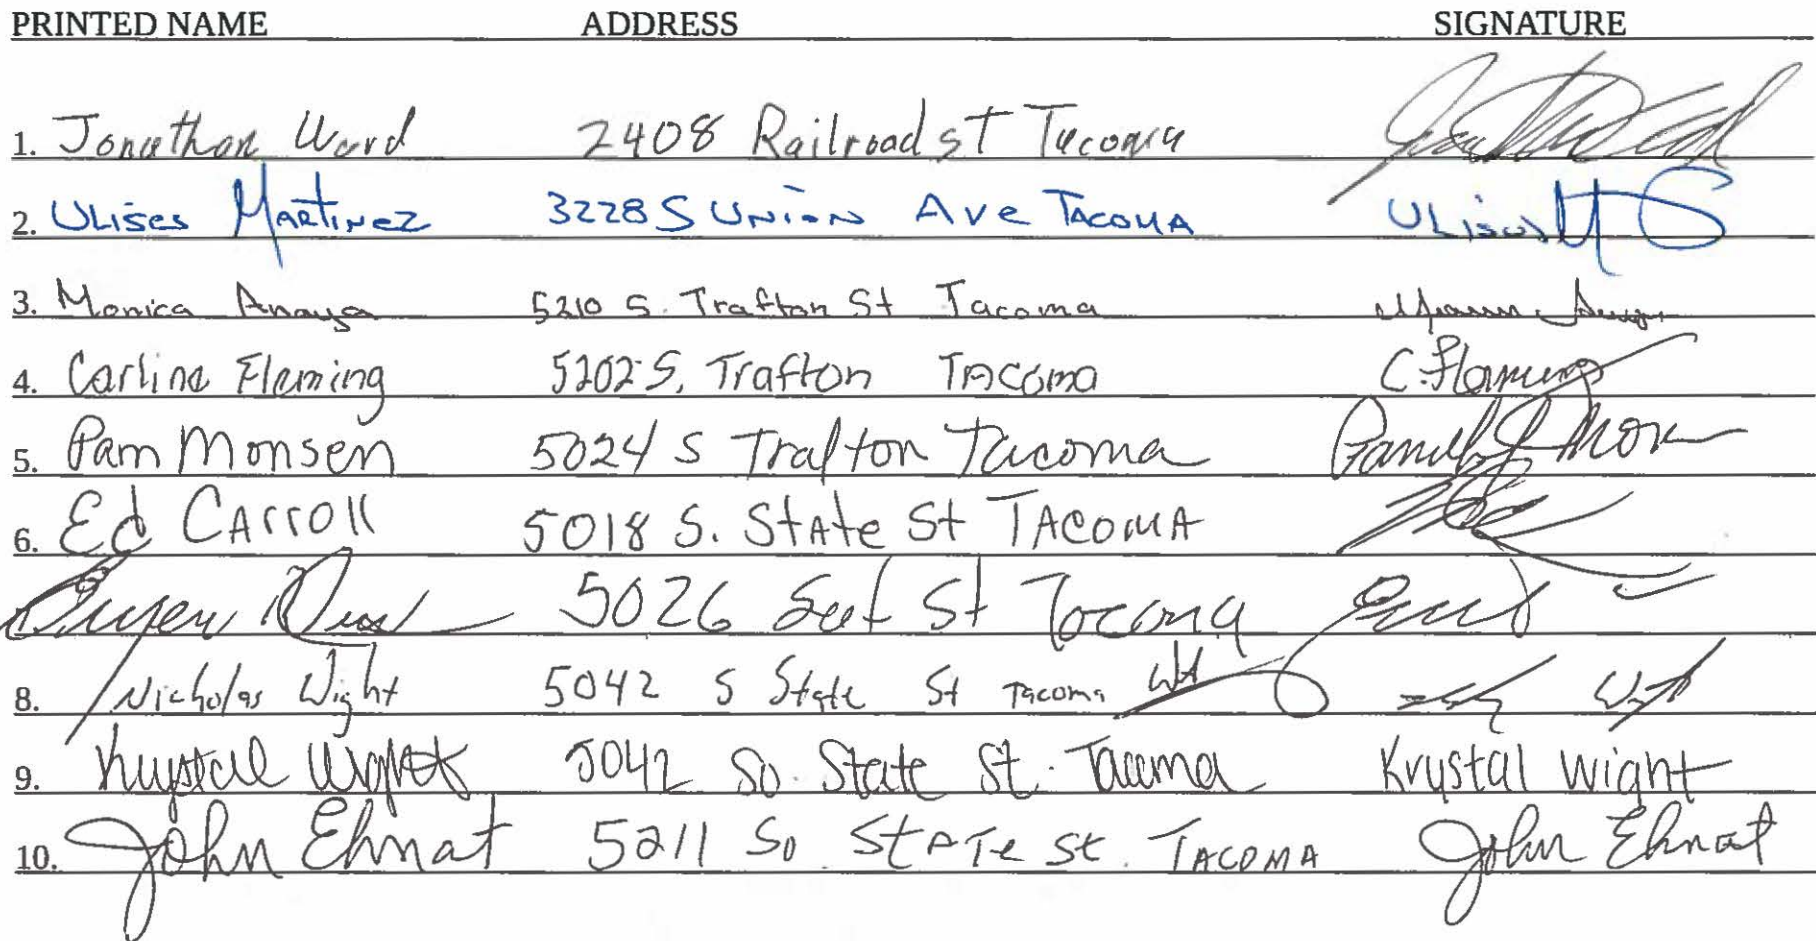 PRINTED NAME ADDRESS SIGNATURE
1. Jonathan Ward 2408 Railroad ST Tacoma
2. ULises MARTinez 3228 S UNION AVE TACOMA ULises M
3. Monica Anaya 5210 S. Trafton St Tacoma
4. Carline Fleming 5202 S. Trafton TACOMA C. Fleming
5. Pam Monsen 5024 S Trafton Tacoma
6. Ed CARROLL 5018 S. StAte St TACOMA
5026 St Tacoma
8. Nicholas Wight 5042 S State St Tacoma WA
9. Krystal Wight 5042 So. State St. Tacoma Krystal Wight
10. John Ehnat 5211 So. STATe St. TACOMA John Ehnat